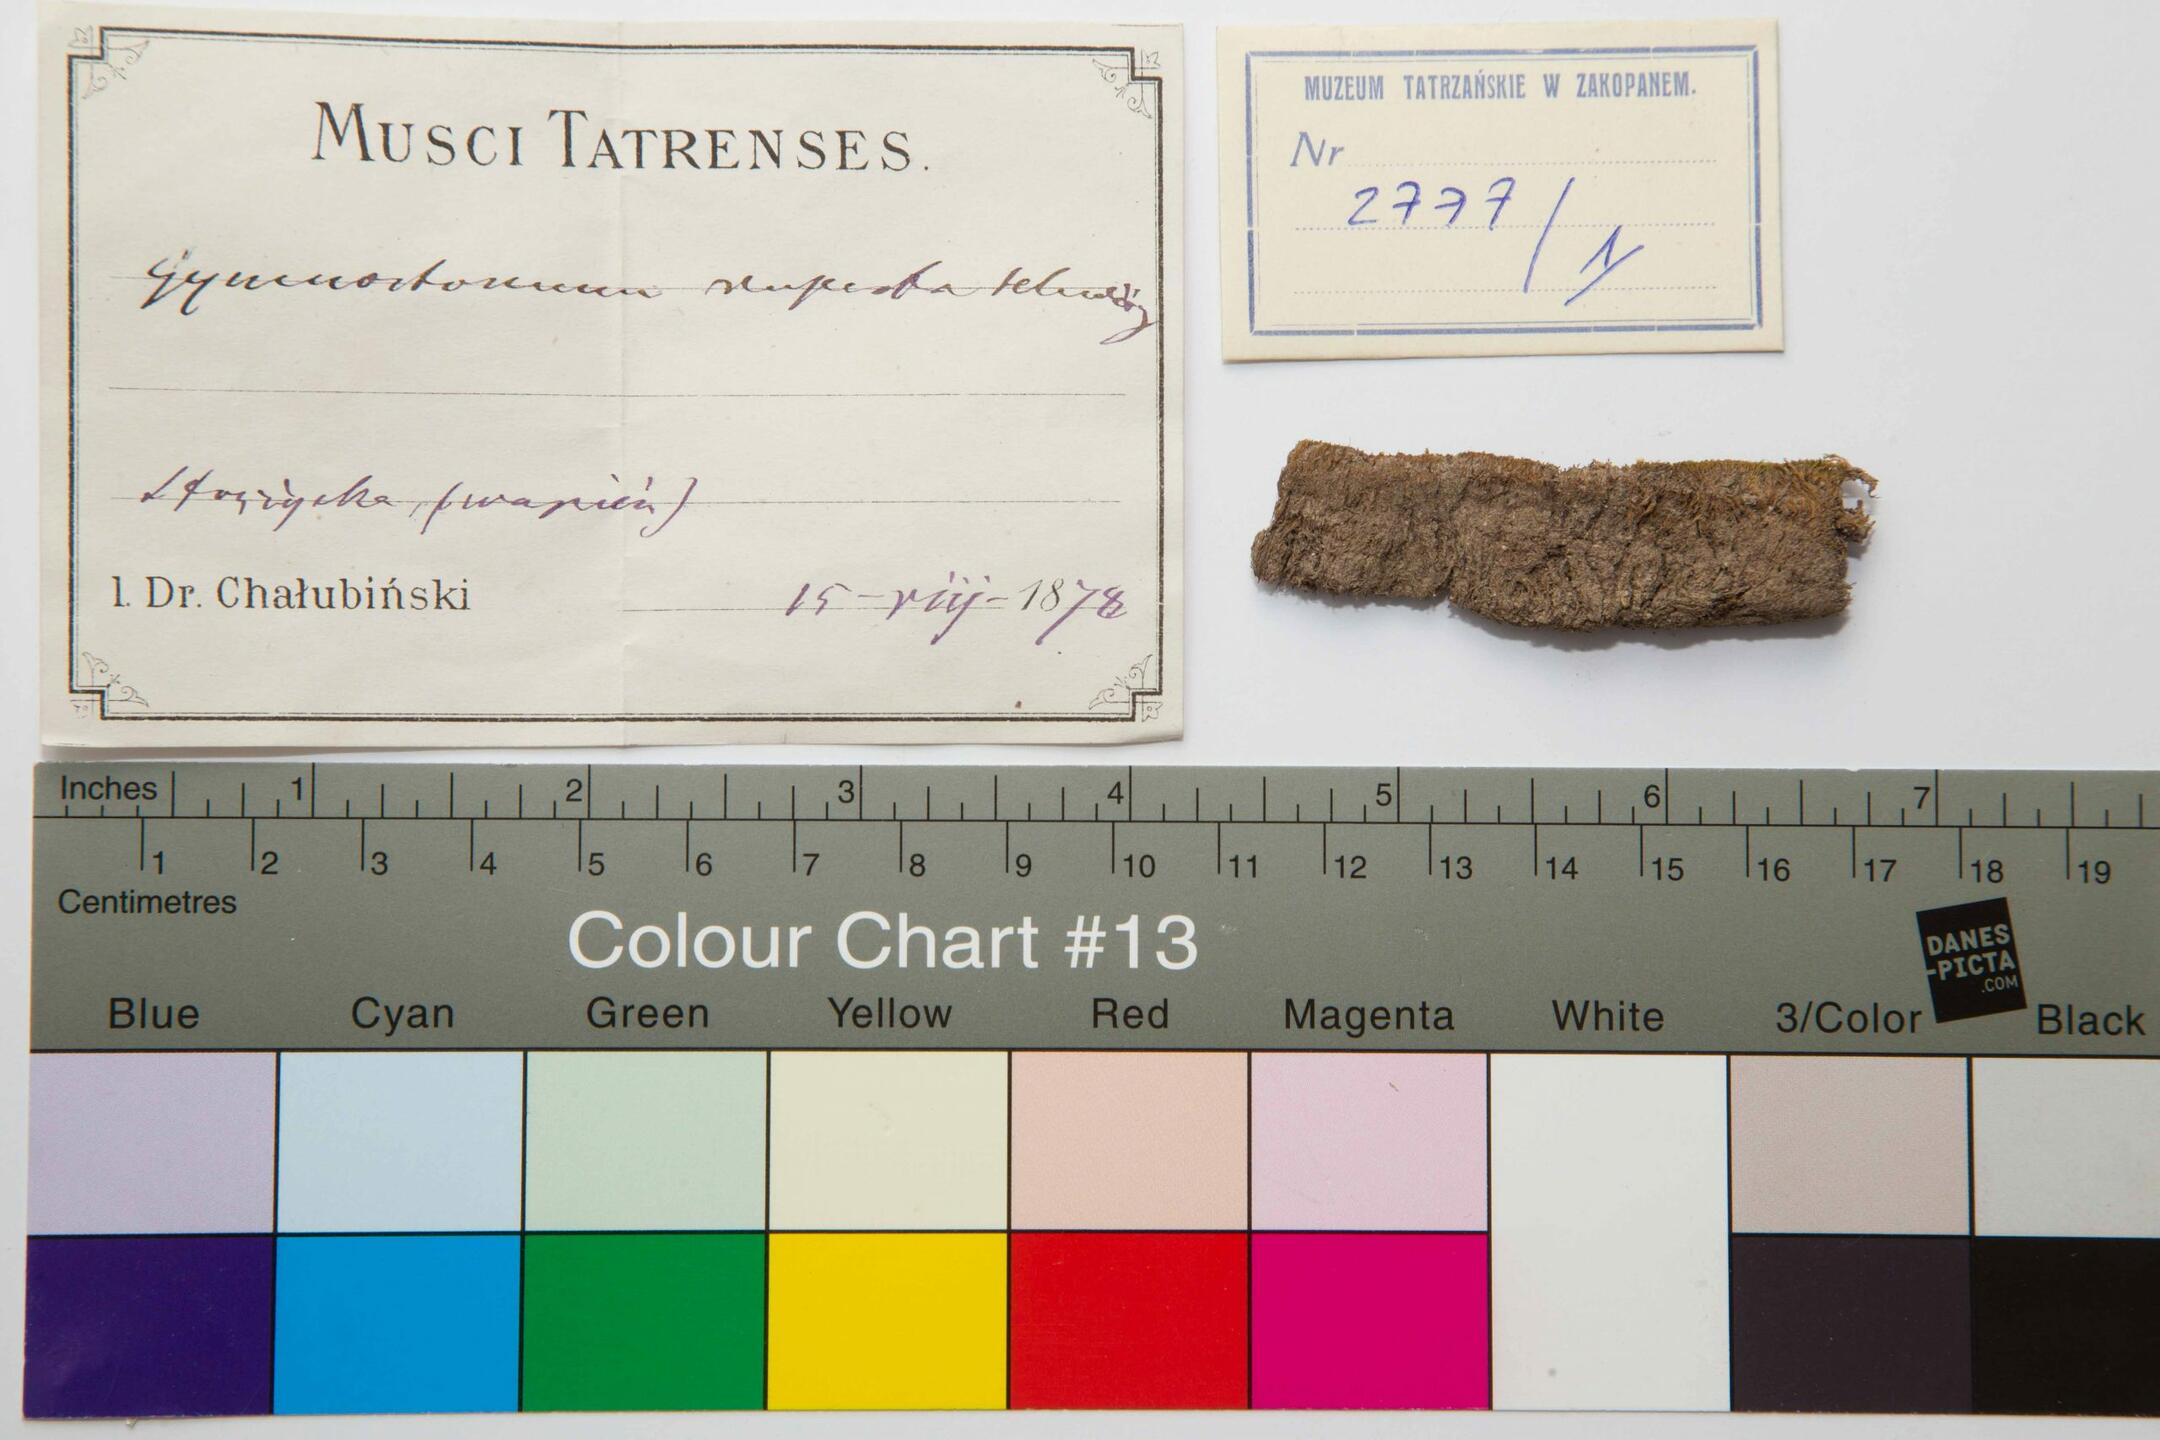 MUSCI TATRENSES.
Gymnostomum rupestre Schwägr
Strążyska, (wapień)
l. Dr. Chałubiński 15-viij-1878
MUZEUM TATRZAŃSKIE W ZAKOPANEM.
Nr
2777/1
Inches 1 2 3 4 5 6 7
1 2 3 4 5 6 7 8 9 10 11 12 13 14 15 16 17 18 19
Centimetres
Colour Chart #13
DANES
-PICTA
.COM
Blue Cyan Green Yellow Red Magenta White 3/Color Black